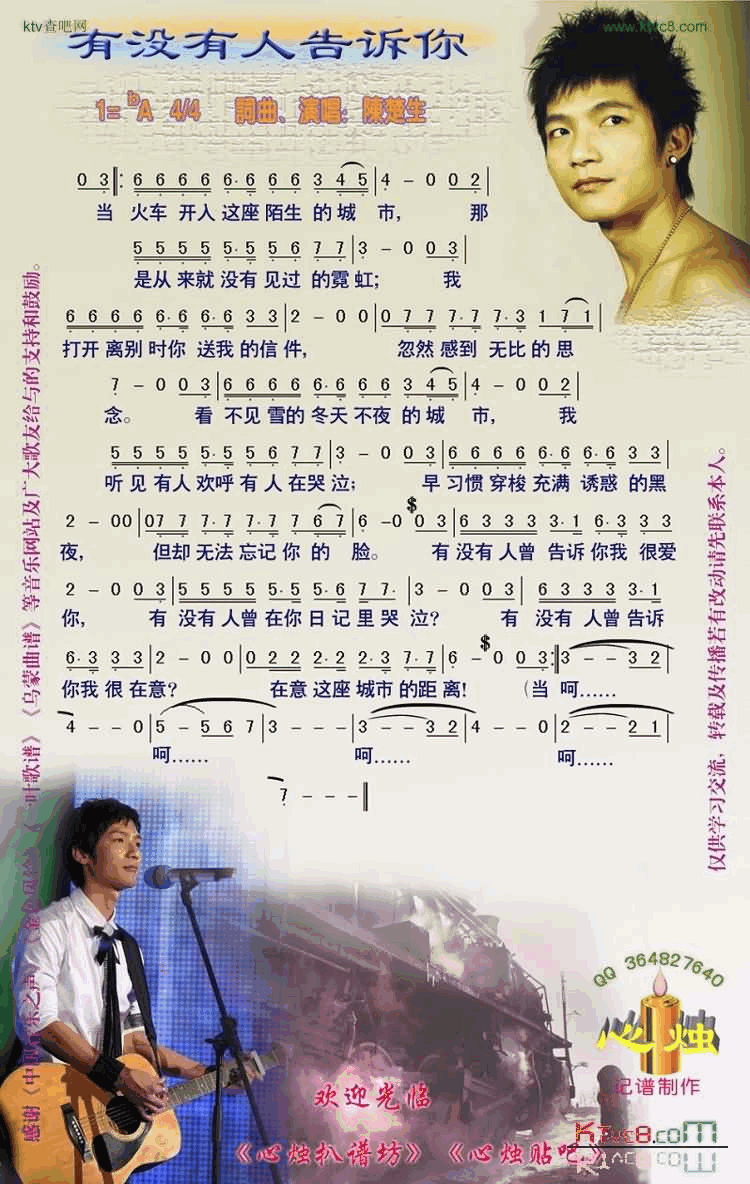 ktv查吧网
www.ktvc8.com
有没有人告诉你
1= ᵇA 4/4 詞曲、演唱：陳楚生
0 3 ‖: 6 6 6 6 6· 6 6 6 3 4 5 | 4 - 0 0 2 |
当 火车 开入 这座 陌生 的 城 市， 那
5 5 5 5 5· 5 5 6 7 7 | 3 - 0 0 3 |
是从 来就 没有 见过 的霓 虹； 我
6 6 6 6 6· 6 6· 6 3 3 | 2 - 0 0 | 0 7 7 7· 7 7· 3 1 7 1 |
打开 离别 时你 送我 的信 件， 忽然 感到 无比 的 思
7 - 0 0 3 | 6 6 6 6 6· 6 6 6 3 4 5 | 4 - 0 0 2 |
念。 看 不见 雪的 冬天 不夜 的 城 市， 我
5 5 5 5 5· 5 5 6 7 7 | 3 - 0 0 3 | 6 6 6 6 6· 6 6· 6 3 3 |
听见 有人 欢呼 有人 在哭 泣； 早 习惯 穿梭 充满 诱惑 的黑
2 - 0 0 | 0 7 7 7· 7 7· 7 7 6 7 | 6 - 0 0 3 | 6 3 3 3 3· 1 6· 3 3 3 |
夜， 但却 无法 忘记 你 的 脸。 有 没有 人曾 告诉 你我 很爱
2 - 0 0 3 | 5 5 5 5 5· 5 5· 6 7 7· | 3 - 0 0 3 | 6 3 3 3 3· 1
你， 有 没有 人曾 在你 日记 里哭 泣？ 有 没有 人曾 告诉
6· 3 3 3 | 2 - 0 0 | 0 2 2 2 2· 2 2· 3 7· 7 | 6 - 0 0 3 :‖ 3 - - 3 2 |
你我 很 在意？ 在意 这座 城市 的距 离！ （当 呵……
4 - - 0 | 5 - 5 6 7 | 3 - - - | 3 - - 3 2 | 4 - - 0 | 2 - - 2 1 |
呵…… 呵…… 呵……
7 - - - ‖
等音乐网站及广大歌友给与的支持和鼓励。
《乌蒙曲谱》
感谢《中
仅供学习交流，转载及传播若有改动请先联系本人。
QQ 364827640
心烛
记谱制作
欢迎光临
《心烛扒谱坊》 《心烛贴吧》
KTVC8.COM